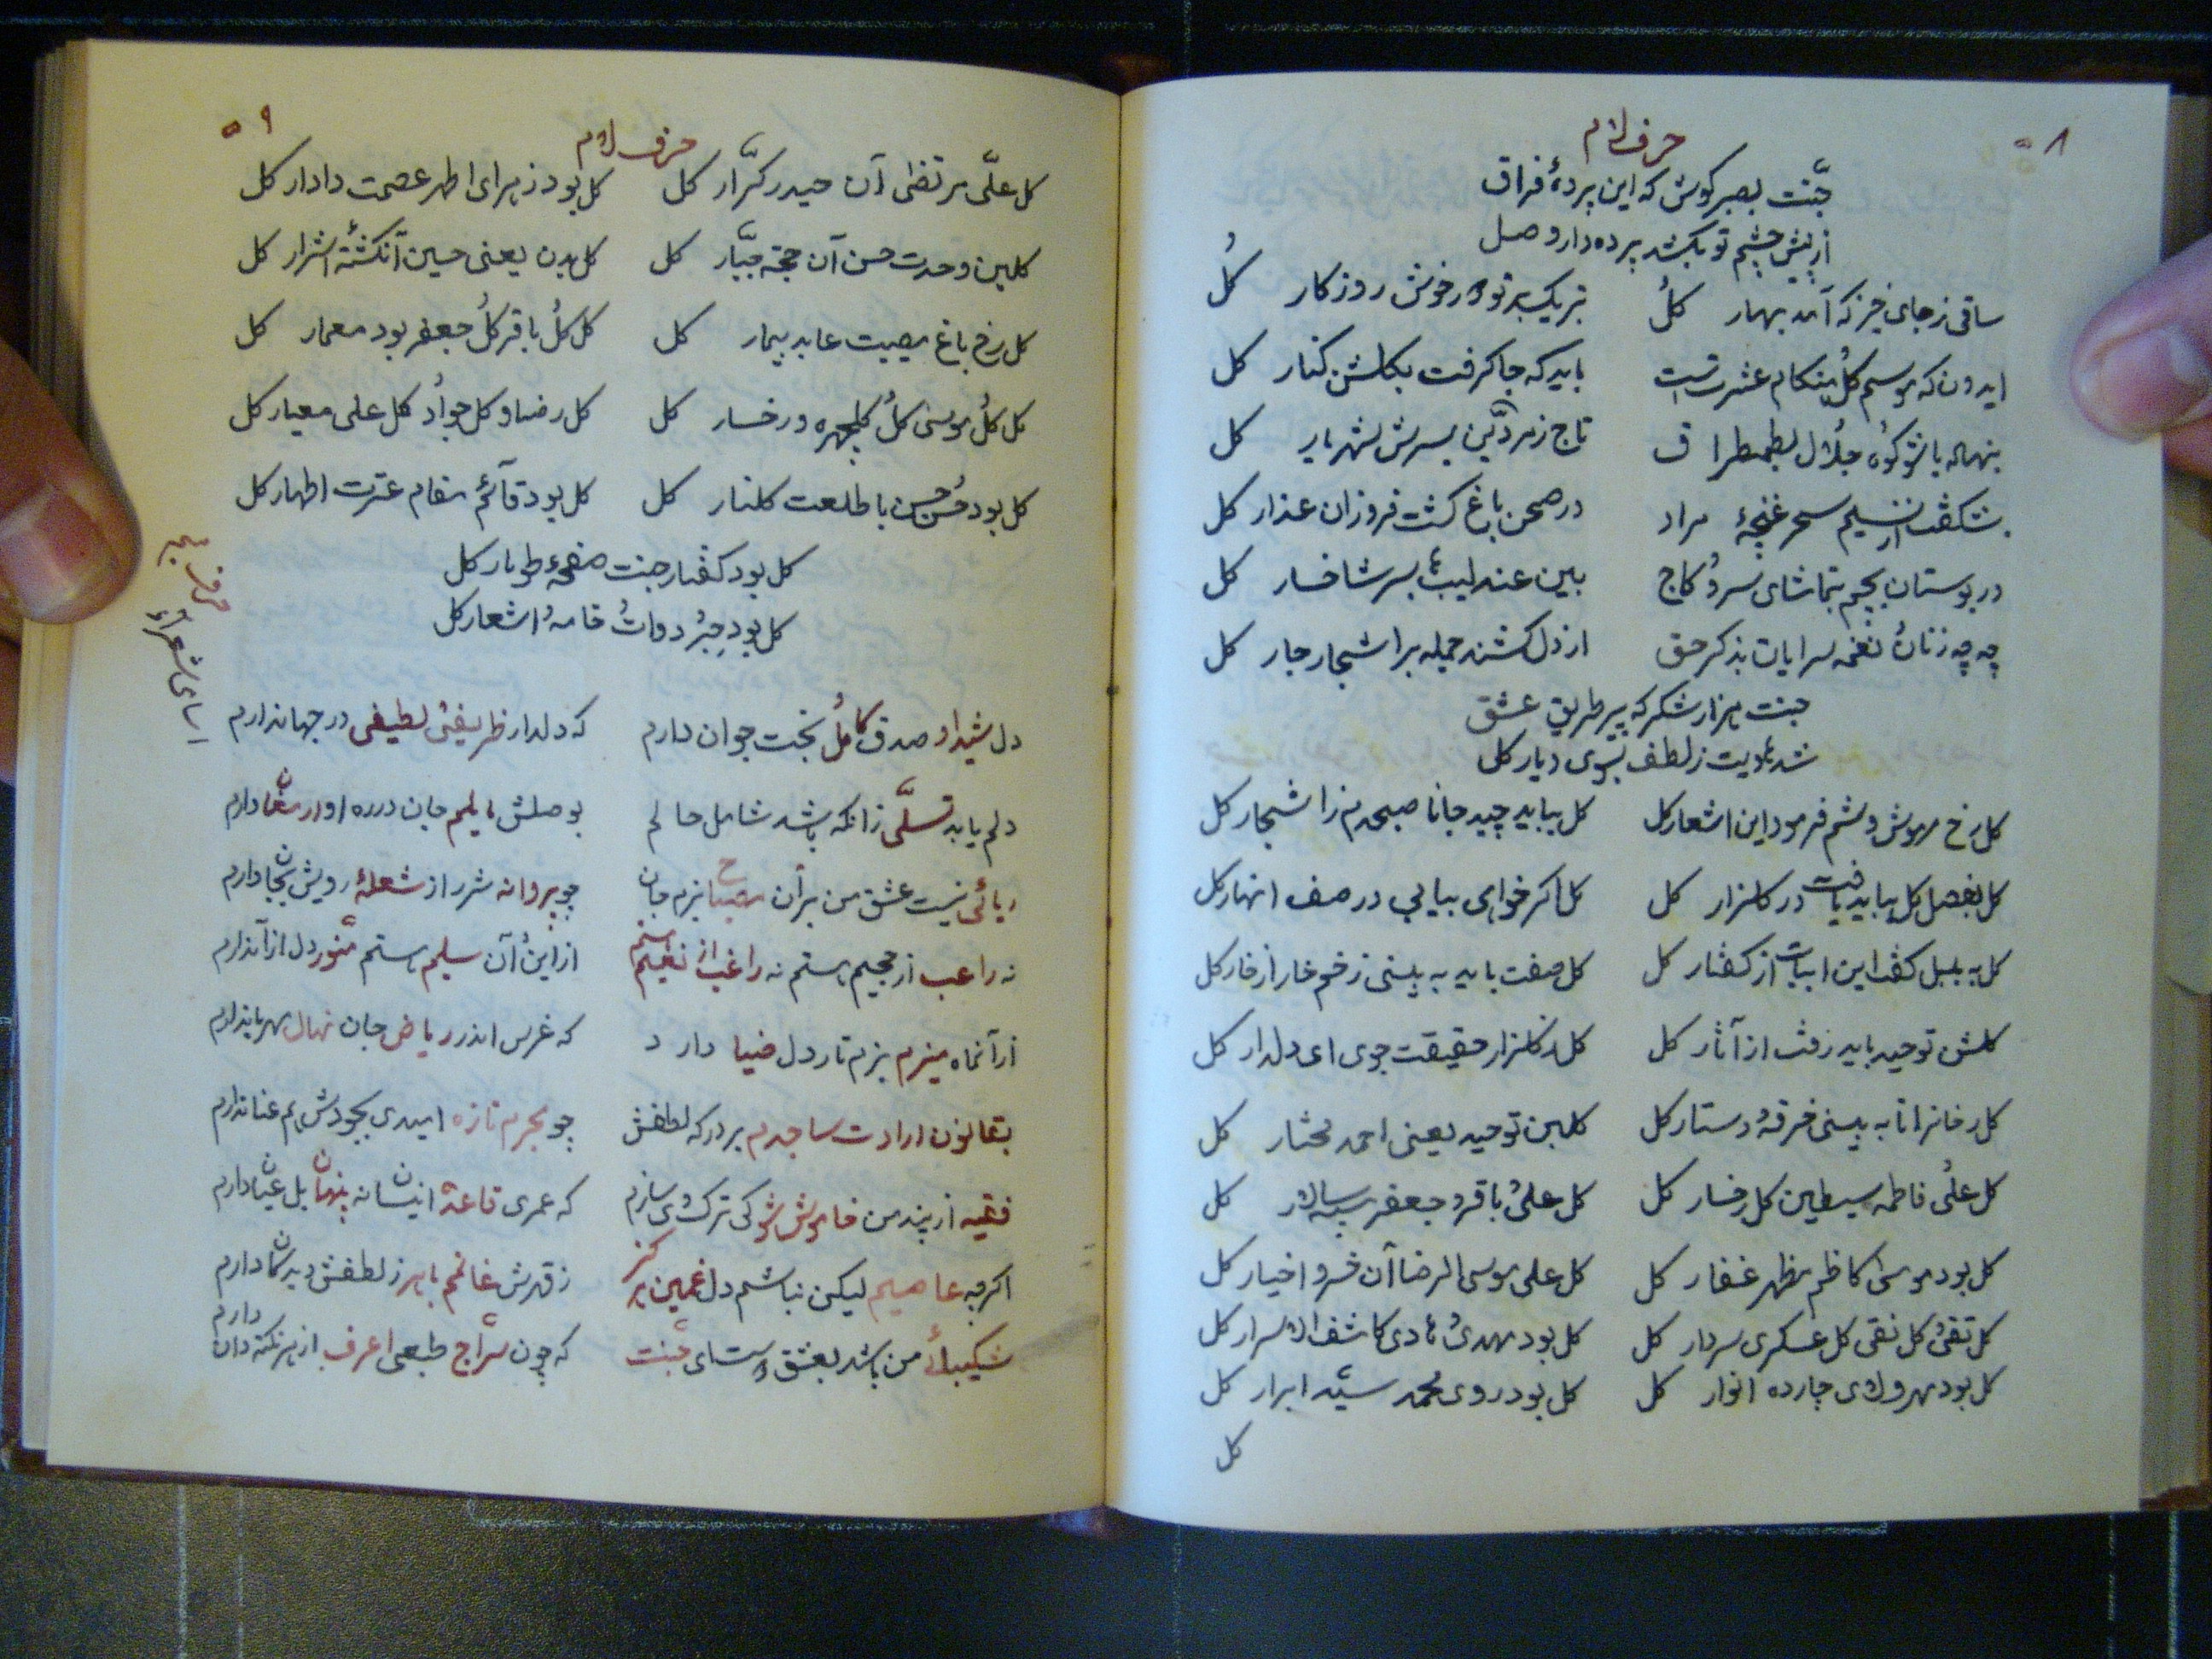 ۵۸
حرف لام
جنّت بصبر کوش که این پردهٔ فراق
از پیش چشم تو بکشد پرده دار وصل
ساقی ز جای خیز که آمد بهار کلُ تبریک بر تو در خوش روزکار کلُ
ایدون که موسم کلُ هنکام عشرت است باید که جا کرفت بکلشن کنار کل
بنهاله با شکوُه جلال بطمطراق تاج زمردّین بسرش شهریار کل
بشکفت از نسیم سحر غنچهٔ مراد در صحن باغ کشت فروزان عذار کل
در بوستان بچم بتماشای سروُ کاج ببین عندلیب ها بسر شاخسار کل
چه چه زنانُ نغمه سرایان بذکر حق از دل کشند جمله بر اشجار جار کل
جنت هزار شکر که پیر طریق عشق
شد هادیت ز لطف بسوی دیار کل
کل رخ مهوش وشم فرمود این اشعار کل کل بباید چید جانا صبحدم ز اشجار کل
کل بفصل کل بباید یافت در کلزار کل کل اکر خواهی بیابی در صف انهار کل
کل به بلبل کفت این ابیات از کفتار کل کل صفت باید به بینی زخم خار از خار کل
کلشن توحید باید رفت از آثار کل کل ز کلزار حقیقت جوی ای دلدار کل
کل رخانرا تا به بینی خرقهُ دستار کل کلبن توحید یعنی احمد مختار کل
کل علیُ فاطمه سبطین کل رخسار کل کل علیُ باقرُ جعفر سپهسالار کل
کل بود موسی کاظم مظهر غفار کل کل علی موسی الرضا آن خسرو اخیار کل
کل تقیُ کل نقی کل عسکری سردار کل کل بود مهدیُ هادی کاشف الاسرار کل
کل بود مهر ولای چارده انوار کل کل بود روی محمد سیّد ابرار کل
کل
۵۹
حرف لام
کل علیّ مرتضی آن حیدر کرّار کل کل بود زهرای اطهر عصمت دادار کل
کلبن وحدت حسن آن حجته جبّار کل کل بدن یعنی حسین آنکشتهٔ اشرار کل
کل رخ باغ مصیبت عابد بیمار کل کل کلُ باقر کلُ جعفر بود معمار کل
کل کلُ موسی کلُ کلچهره و رخسار کل کل رضا و کل جوادُ کل علی معیار کل
کل بود حُسن حسن با طلعت کلنار کل کل بود قآئم مقام عترت اطهار کل
کل بود کفتار جنت صفحهٔ طومار کل
کل بود حِبرُ دواتُ خامهُ اشعار کل
حرف میم
اسامی شعرآء
دل شیدا و صدق کاملُ بخت جوان دارم که دلدار ظریفیُ لطیفی در جهاندارم
دلم یابد تسلّی زانکه باشد شامل حالم بوصلش مایلم جان در ره او ارمغان دارم
ریائی نیست عشق من بر آن مصباح بزم جان چو پروانه شرر از شعلهٔ رویش بجان دارم
نه راعب از جحیم هستم نه راغب از نعیم هستم از اینُ آن سلیم هستم منّور دل از آندارم
از آنماه منیرم بزم تار دل ضیا دارد که غرس اندر ریاض جان نهال مهرباندارم
بقانون ارادت ساجدم بر درکه لطفش چو بحرم تازه امیدی بجودش هم عناندارم
فقیه از پند من خاموش شو کی ترک وی سازم که عمری قاعدهٔ اینسان نه پنهان بل عیان دارم
اکرچه عاصیم لیکن نباشم دل غمین هرکز ز قهرش غانمم باهر ز لطفش دیدکان دارم
شکیبائی من باشد بعشق دوست ای جنّت که چون سرّاج طبعی اعرف از هر نکته دان دارم